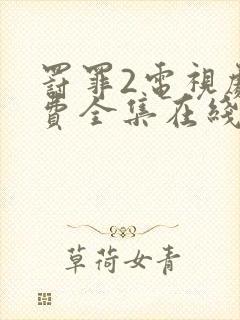 罸罪2電視劇
費全集在綫
草荷女青